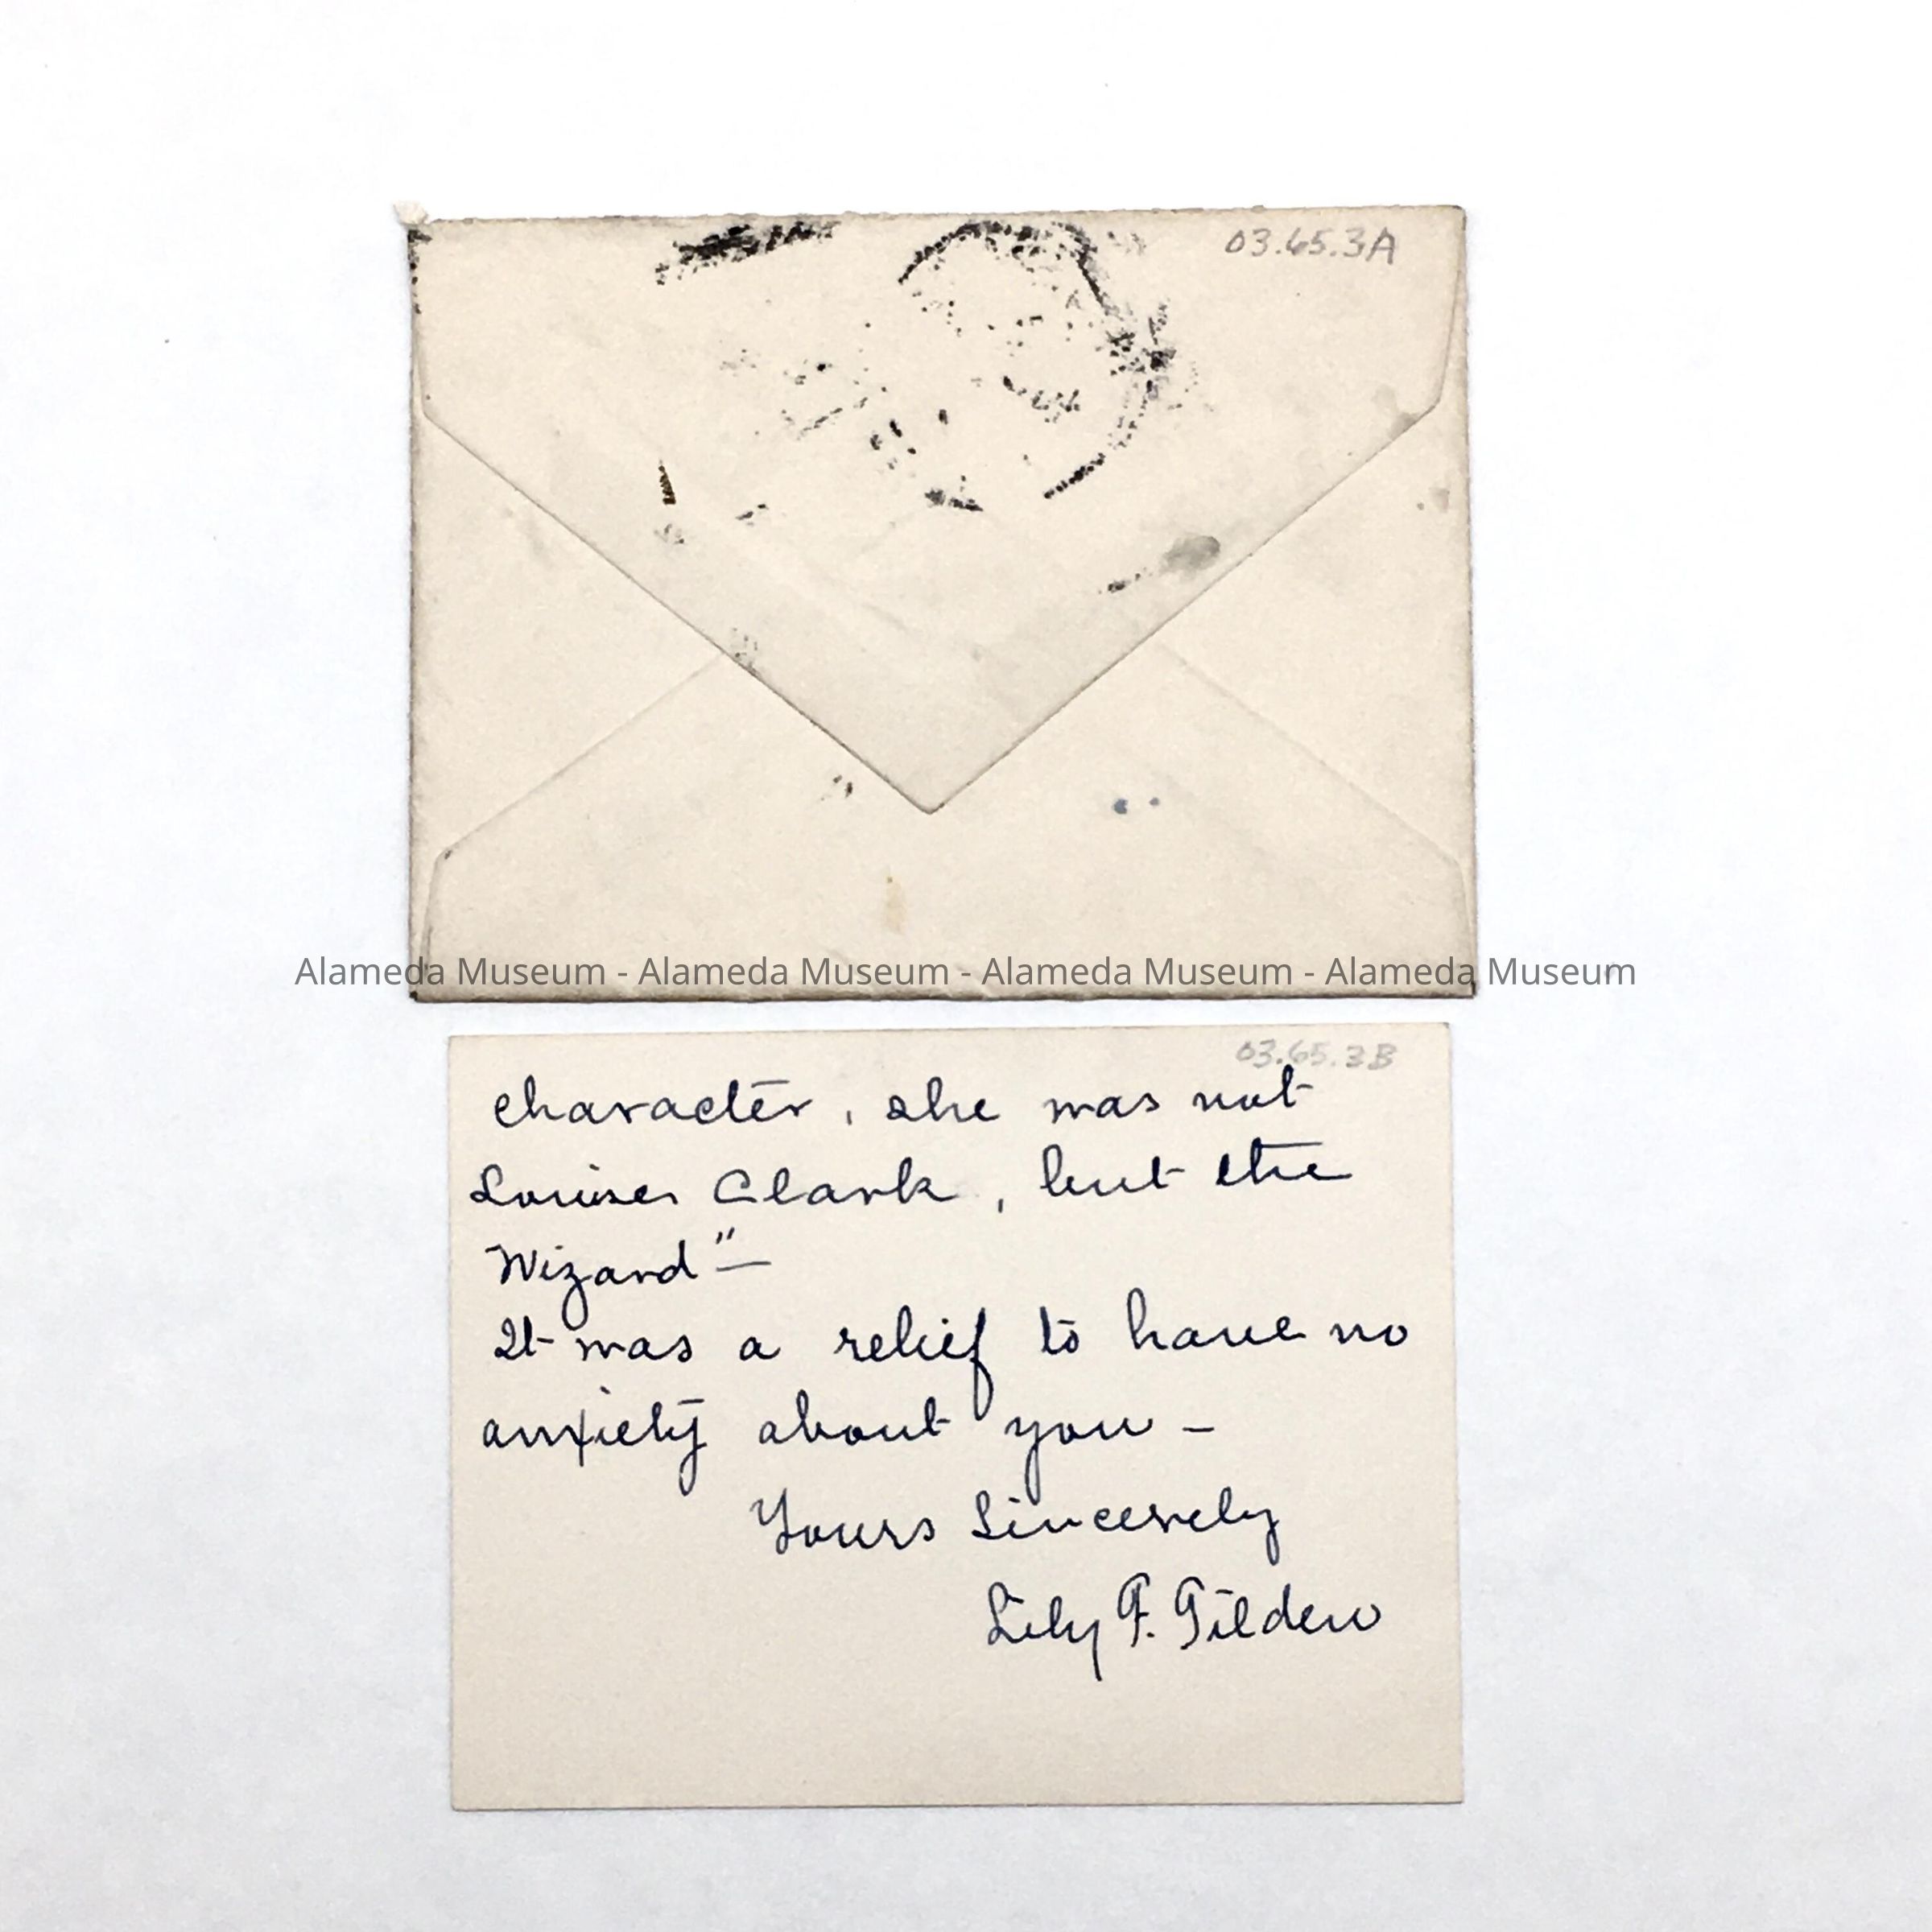 03.65.3A
Alameda Museum - Alameda Museum - Alameda Museum - Alameda Museum
03.65.3B
character, she was not
Louise Clark, but the
Wizard"—
It was a relief to have no
anxiety about you –
Yours Sincerely
Lily F. Tilden